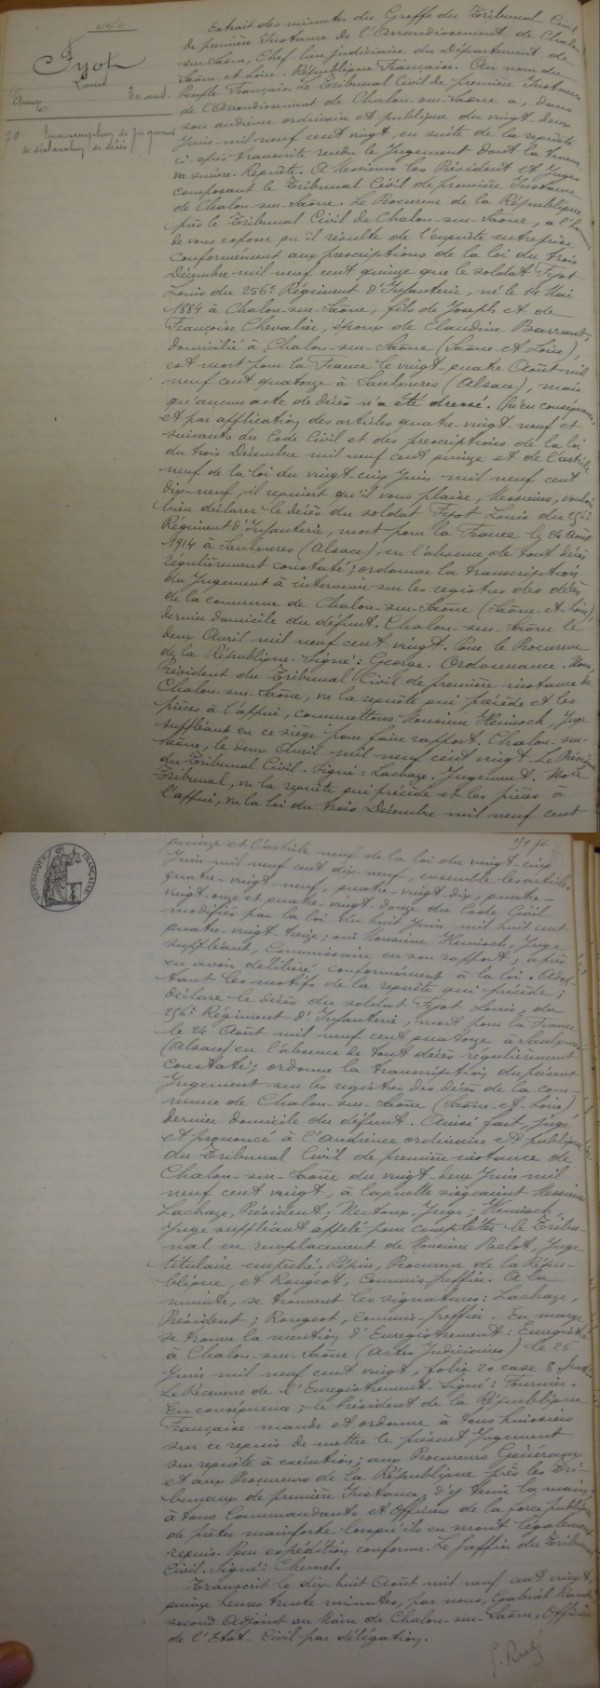 440
Fyot
Louis
Epoux 30 ans
20. Transcription de jugement
de déclaration de décès
Extrait des minutes du Greffe du Tribunal Civil
de première Instance de l'Arrondissement de Chalon-
sur-Saône, Chef-lieu judiciaire du Département de
Saône et Loire. République Française. Au nom du
Peuple Français. Le Tribunal Civil de première Instance
de l'Arrondissement de Chalon-sur-Saône a, dans
son audience ordinaire et publique du vingt deux
Juin mil neuf cent vingt, en suite de la requête
ci-après transcrite rendu le Jugement dont la teneur
va suivre. Requête. A Messieurs les Président et Juges
composant le Tribunal Civil de première Instance
de Chalon-sur-Saône. Le Procureur de la République
près le Tribunal Civil de Chalon-sur-Saône, a l'honneur
de vous exposer qu'il résulte de l'enquête entreprise
conformément aux prescriptions de la loi du trois
Décembre mil neuf cent quinze que le soldat Fyot
Louis du 256e Régiment d'Infanterie, né le 14 Mai
1884 à Chalon-sur-Saône, fils de Joseph et de
Françoise Chevalier, époux de Claudine Barraut,
domicilié à Chalon-sur-Saône (Saône-et-Loire),
est mort pour la France le vingt-quatre Août mil
neuf cent quatorze à Saulxures (Alsace), mais
qu'aucun acte de décès n'a été dressé. Qu'en conséquence
et par application des articles quatre-vingt neuf et
suivants du Code Civil et des prescriptions de la loi
du trois Décembre mil neuf cent quinze et de l'article
neuf de la loi du vingt cinq Juin mil neuf cent
dix-neuf, il requiert qu'il vous plaise, Messieurs, vouloir
bien déclarer le décès du soldat Fyot Louis du 256e
Régiment d'Infanterie, mort pour la France le 24 Août
1914 à Saulxures (Alsace), en l'absence de tout décès
régulièrement constaté; ordonner la transcription
du Jugement à intervenir sur les registres des décès
de la commune de Chalon-sur-Saône (Saône-et-Loire),
dernier domicile du défunt. Chalon-sur-Saône le
deux Avril mil neuf cent vingt. Pour le Procureur
de la République. Signé: George. Ordonnance. Nous,
Président du Tribunal Civil de première instance de
Chalon-sur-Saône, vu la requête qui précède et les
pièces à l'appui, commettons Monsieur Heimoch, Juge
suppléant en ce siège pour faire rapport. Chalon-sur-
Saône, le deux Avril mil neuf cent vingt. Le Président
du Tribunal Civil. Signé: Lachaze. Jugement. Le
Tribunal, vu la requête qui précède et les pièces à
l'appui, vu la loi du trois Décembre mil neuf cent
RÉPUBLIQUE FRANÇAISE
quinze et l'article neuf de la loi du vingt-cinq
Juin mil neuf cent dix-neuf, ensemble les articles
quatre-vingt-neuf, quatre-vingt-dix, quatre-
vingt-onze et quatre-vingt douze du Code Civil
modifiés par la loi du huit Juin mil huit cent
quatre-vingt treize; oui Monsieur Heimoch, Juge
suppléant, Commissaire en son rapport, après
en avoir délibéré conformément à la loi. Adop-
tant les motifs de la requête qui précède;
déclare le décès du soldat Fyot Louis, du
256e Régiment d'Infanterie, mort pour la France
le 24 Août mil neuf cent quatorze à Saulxures
(Alsace) en l'absence de tout décès régulièrement
constaté; ordonne la transcription du présent
Jugement sur les registres des décès de la com-
mune de Chalon-sur-Saône (Saône-et-Loire),
dernier domicile du défunt. Ainsi fait, jugé
et prononcé à l'audience ordinaire et publique
du Tribunal Civil de première instance de
Chalon-sur-Saône du vingt-deux Juin mil
neuf cent vingt, à laquelle siégeaient Messieurs
Lachaze, Président; Nectoux, Juge; Heimoch,
Juge suppléant appelé pour compléter le Tribu-
nal en remplacement de Monsieur Belot, Juge
titulaire empêché. Répin, Procureur de la Répu-
blique, et Rougeot, Commis-greffier. A la
minute, se trouvent les signatures: Lachaze,
Président; Rougeot, commis-greffier. En marge
se trouve la mention d'Enregistrement: Enregistré
à Chalon-sur-Saône (Actes Judiciaires) le 26
Juin mil neuf cent vingt, folio 20 case 8.
Le Receveur de l'Enregistrement. Signé: Fournier.
En conséquence; le Président de la République
Française mande et ordonne à tous huissiers
sur ce requis de mettre le présent Jugement
sur requête à exécution; aux Procureurs Généraux
et aux Procureurs de la République près les Tri-
bunaux de première Instance, d'y tenir la main,
à tous Commandants et Officiers de la force publique
de prêter mainforte lorsqu'ils en seront légalement
requis. Pour expédition conforme. Le greffier du Tribunal
Civil. Signé: Chernet.
Transcrit le dix huit Août mil neuf cent vingt,
quinze heures trente minutes, par nous, Gabriel
second Adjoint au Maire de Chalon-sur-Saône, Officier
de l'Etat-Civil par délégation.